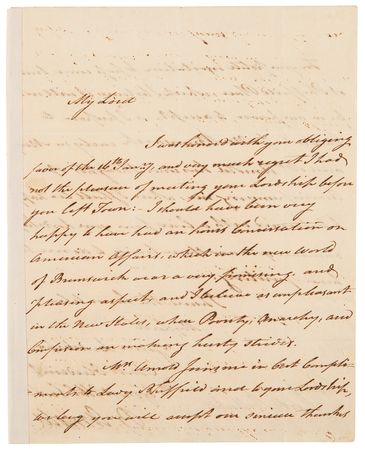 My Lord
I was honored with your obliging
favor of the 16th Jan'y, and very much regret I had
not the pleasure of meeting your Lordship before
you left Town: I should have been very
happy to have had an hours Conversation on
American Affairs, which in the new World
of Brunswick wear a very promising and
pleasing aspect, and I believe as unpleasant
in the New States, where Poverty, Anarchy, and
Confusion are making hasty strides.
Mrs Arnold Joins me in best Compli-
ments to Lady Sheffield and to your Lordship,
& beg you will accept our sincere thanks